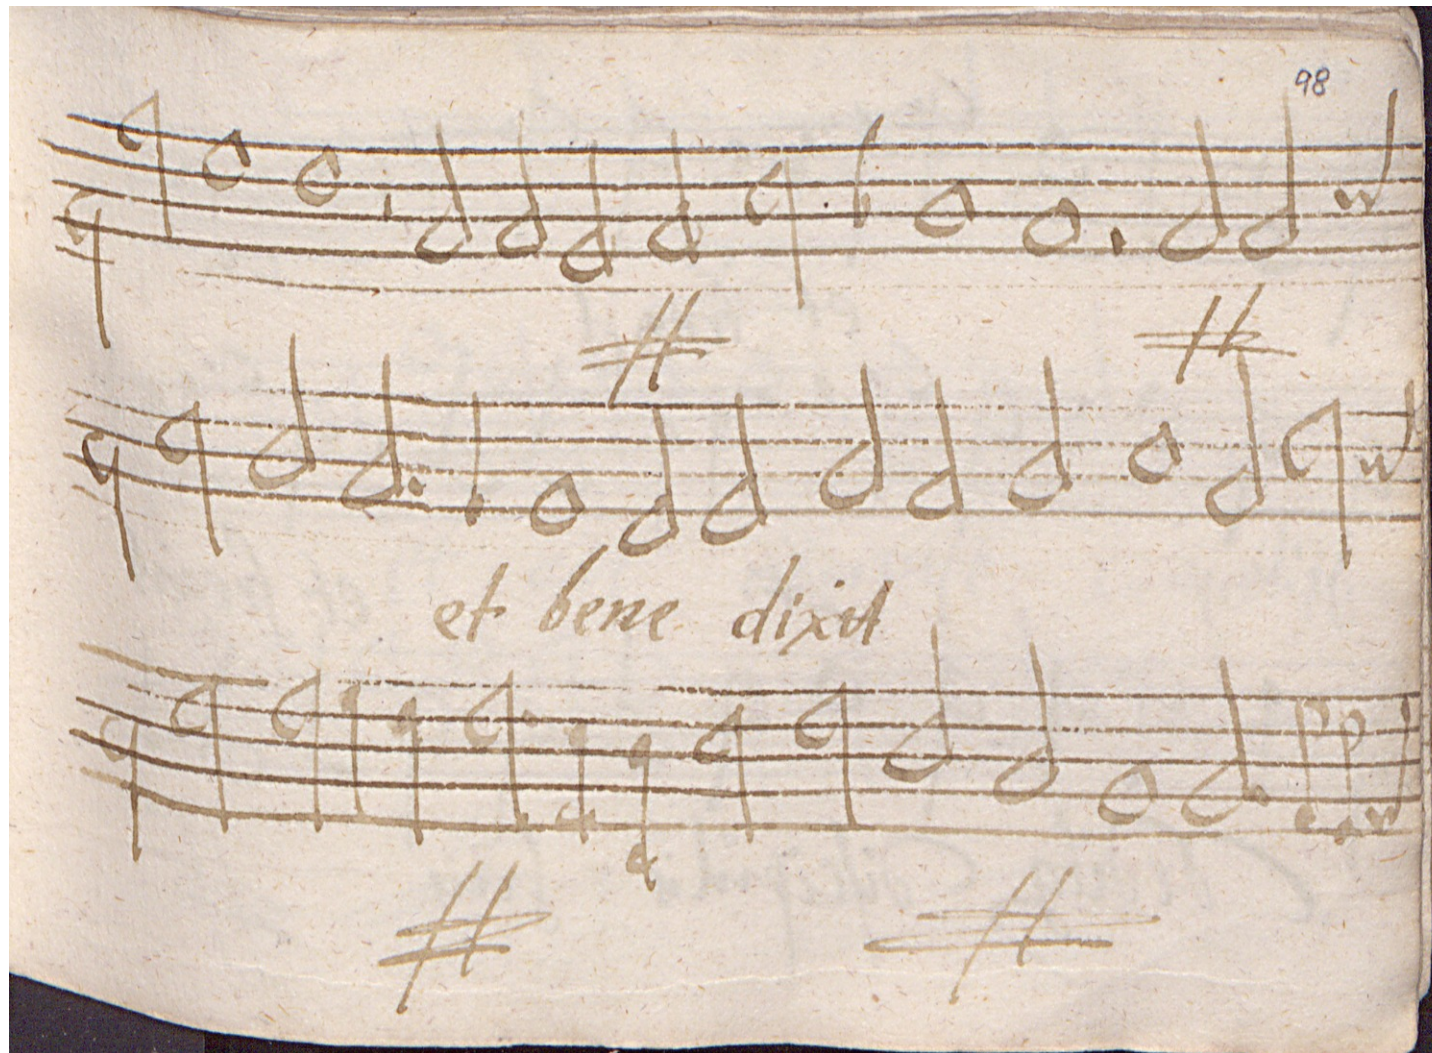 98
et bene dixit